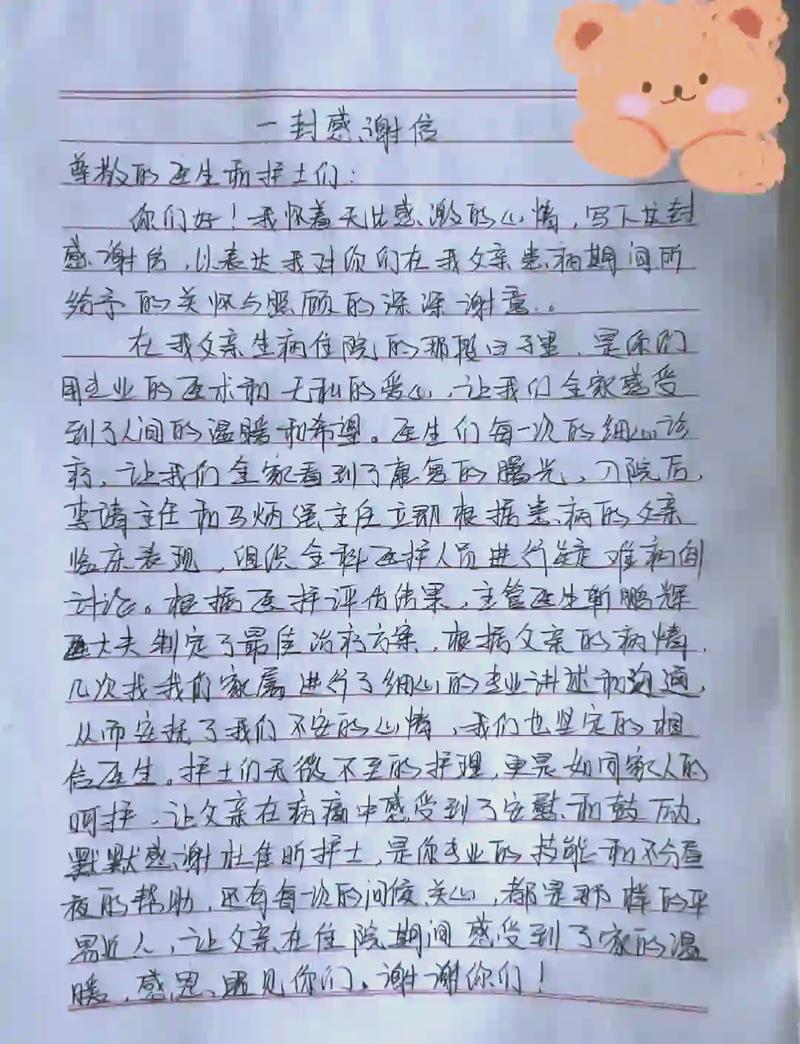 一封感谢信
尊敬的医生和护士们：
你们好！我怀着无比感激的心情，写下这封
感谢信，以表达我对你们在我父亲患病期间所
给予的关怀与照顾的深深谢意。
在我父亲生病住院的那段日子里，是你们
用专业的医术和无私的爱心，让我们全家感受
到了人间的温暖和希望。医生们每一次的细心诊
疗，让我们全家看到了康复的曙光，入院后，
李请主任和马炳强主任立即根据患病的父亲
临床表现，组织全科医护人员进行疑难病例
讨论。根据医护评估结果，主管医生靳鹏辉
大夫制定了最佳治疗方案，根据父亲的病情，
几次找我们家属进行了细心的专业讲述和沟通，
从而安抚了我们不安的心情，我们也坚定的相
信医生。护士们无微不至的护理，更是如同家人的
呵护，让父亲在病痛中感受到了安慰和鼓励，
默默感谢杜佳昕护士，是你专业的技能和不分昼
夜的帮助，还有每一次的问候关心，都是那样的平
易近人，让父亲在住院期间感受到了家的温
暖，感恩遇见你们。谢谢你们！